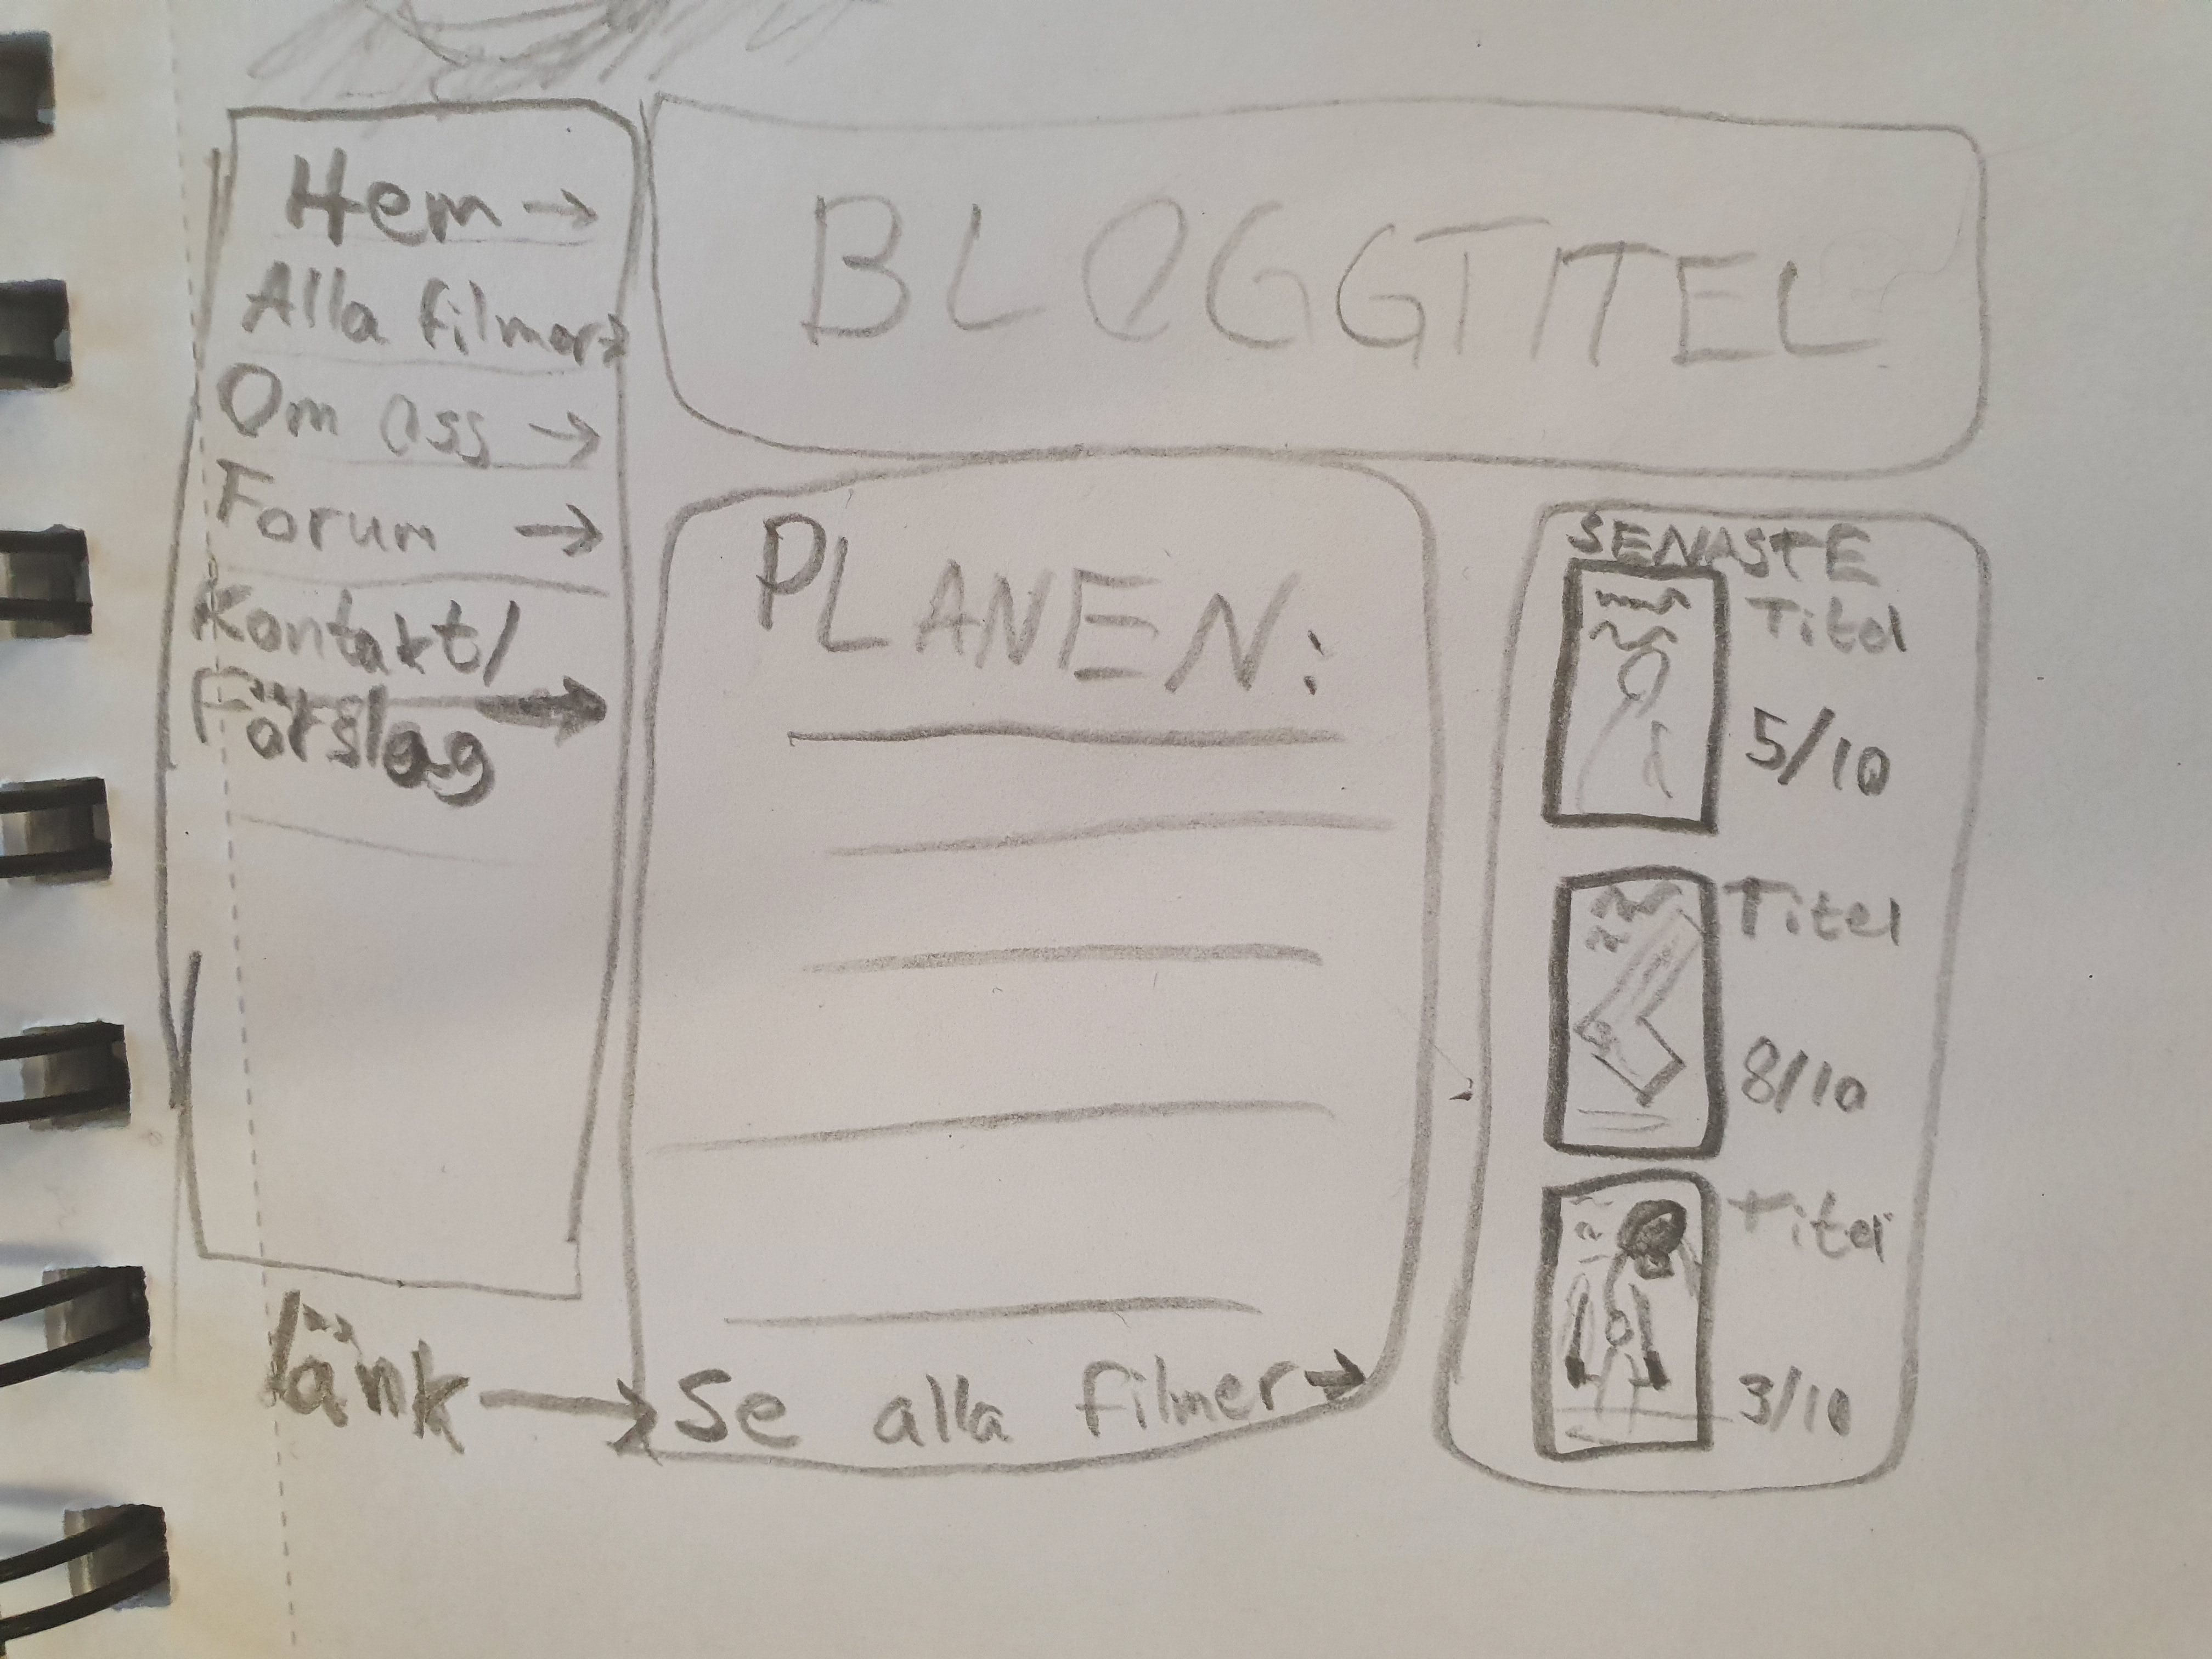 Hem →
Alla filmer→
Om oss →
Forum →
Kontakt/
Förslag →
BLOGGTITEL
PLANEN:
Se alla filmer→
länk →
SENASTE
Titel
5/10
Titel
8/10
Titel
3/10